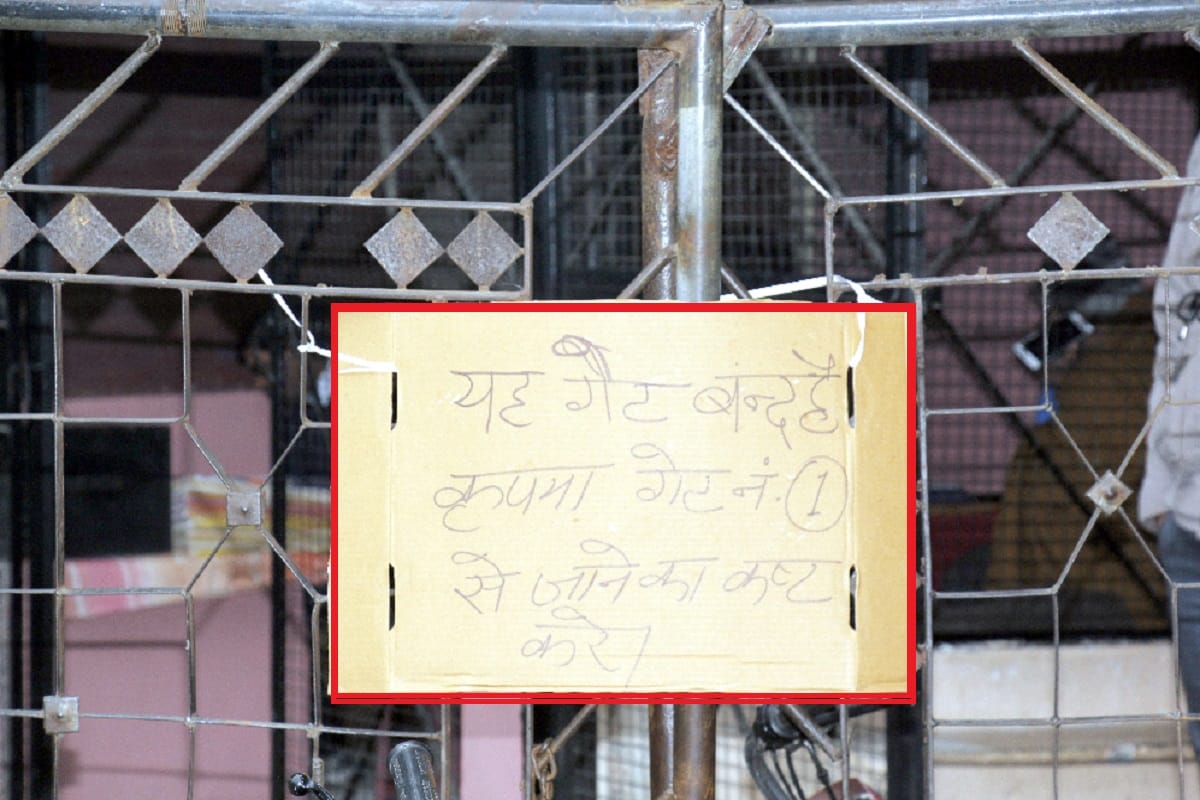 यह गेट बन्द है
कृपया गेट नं. 1
से जाने का कष्ट
करे।